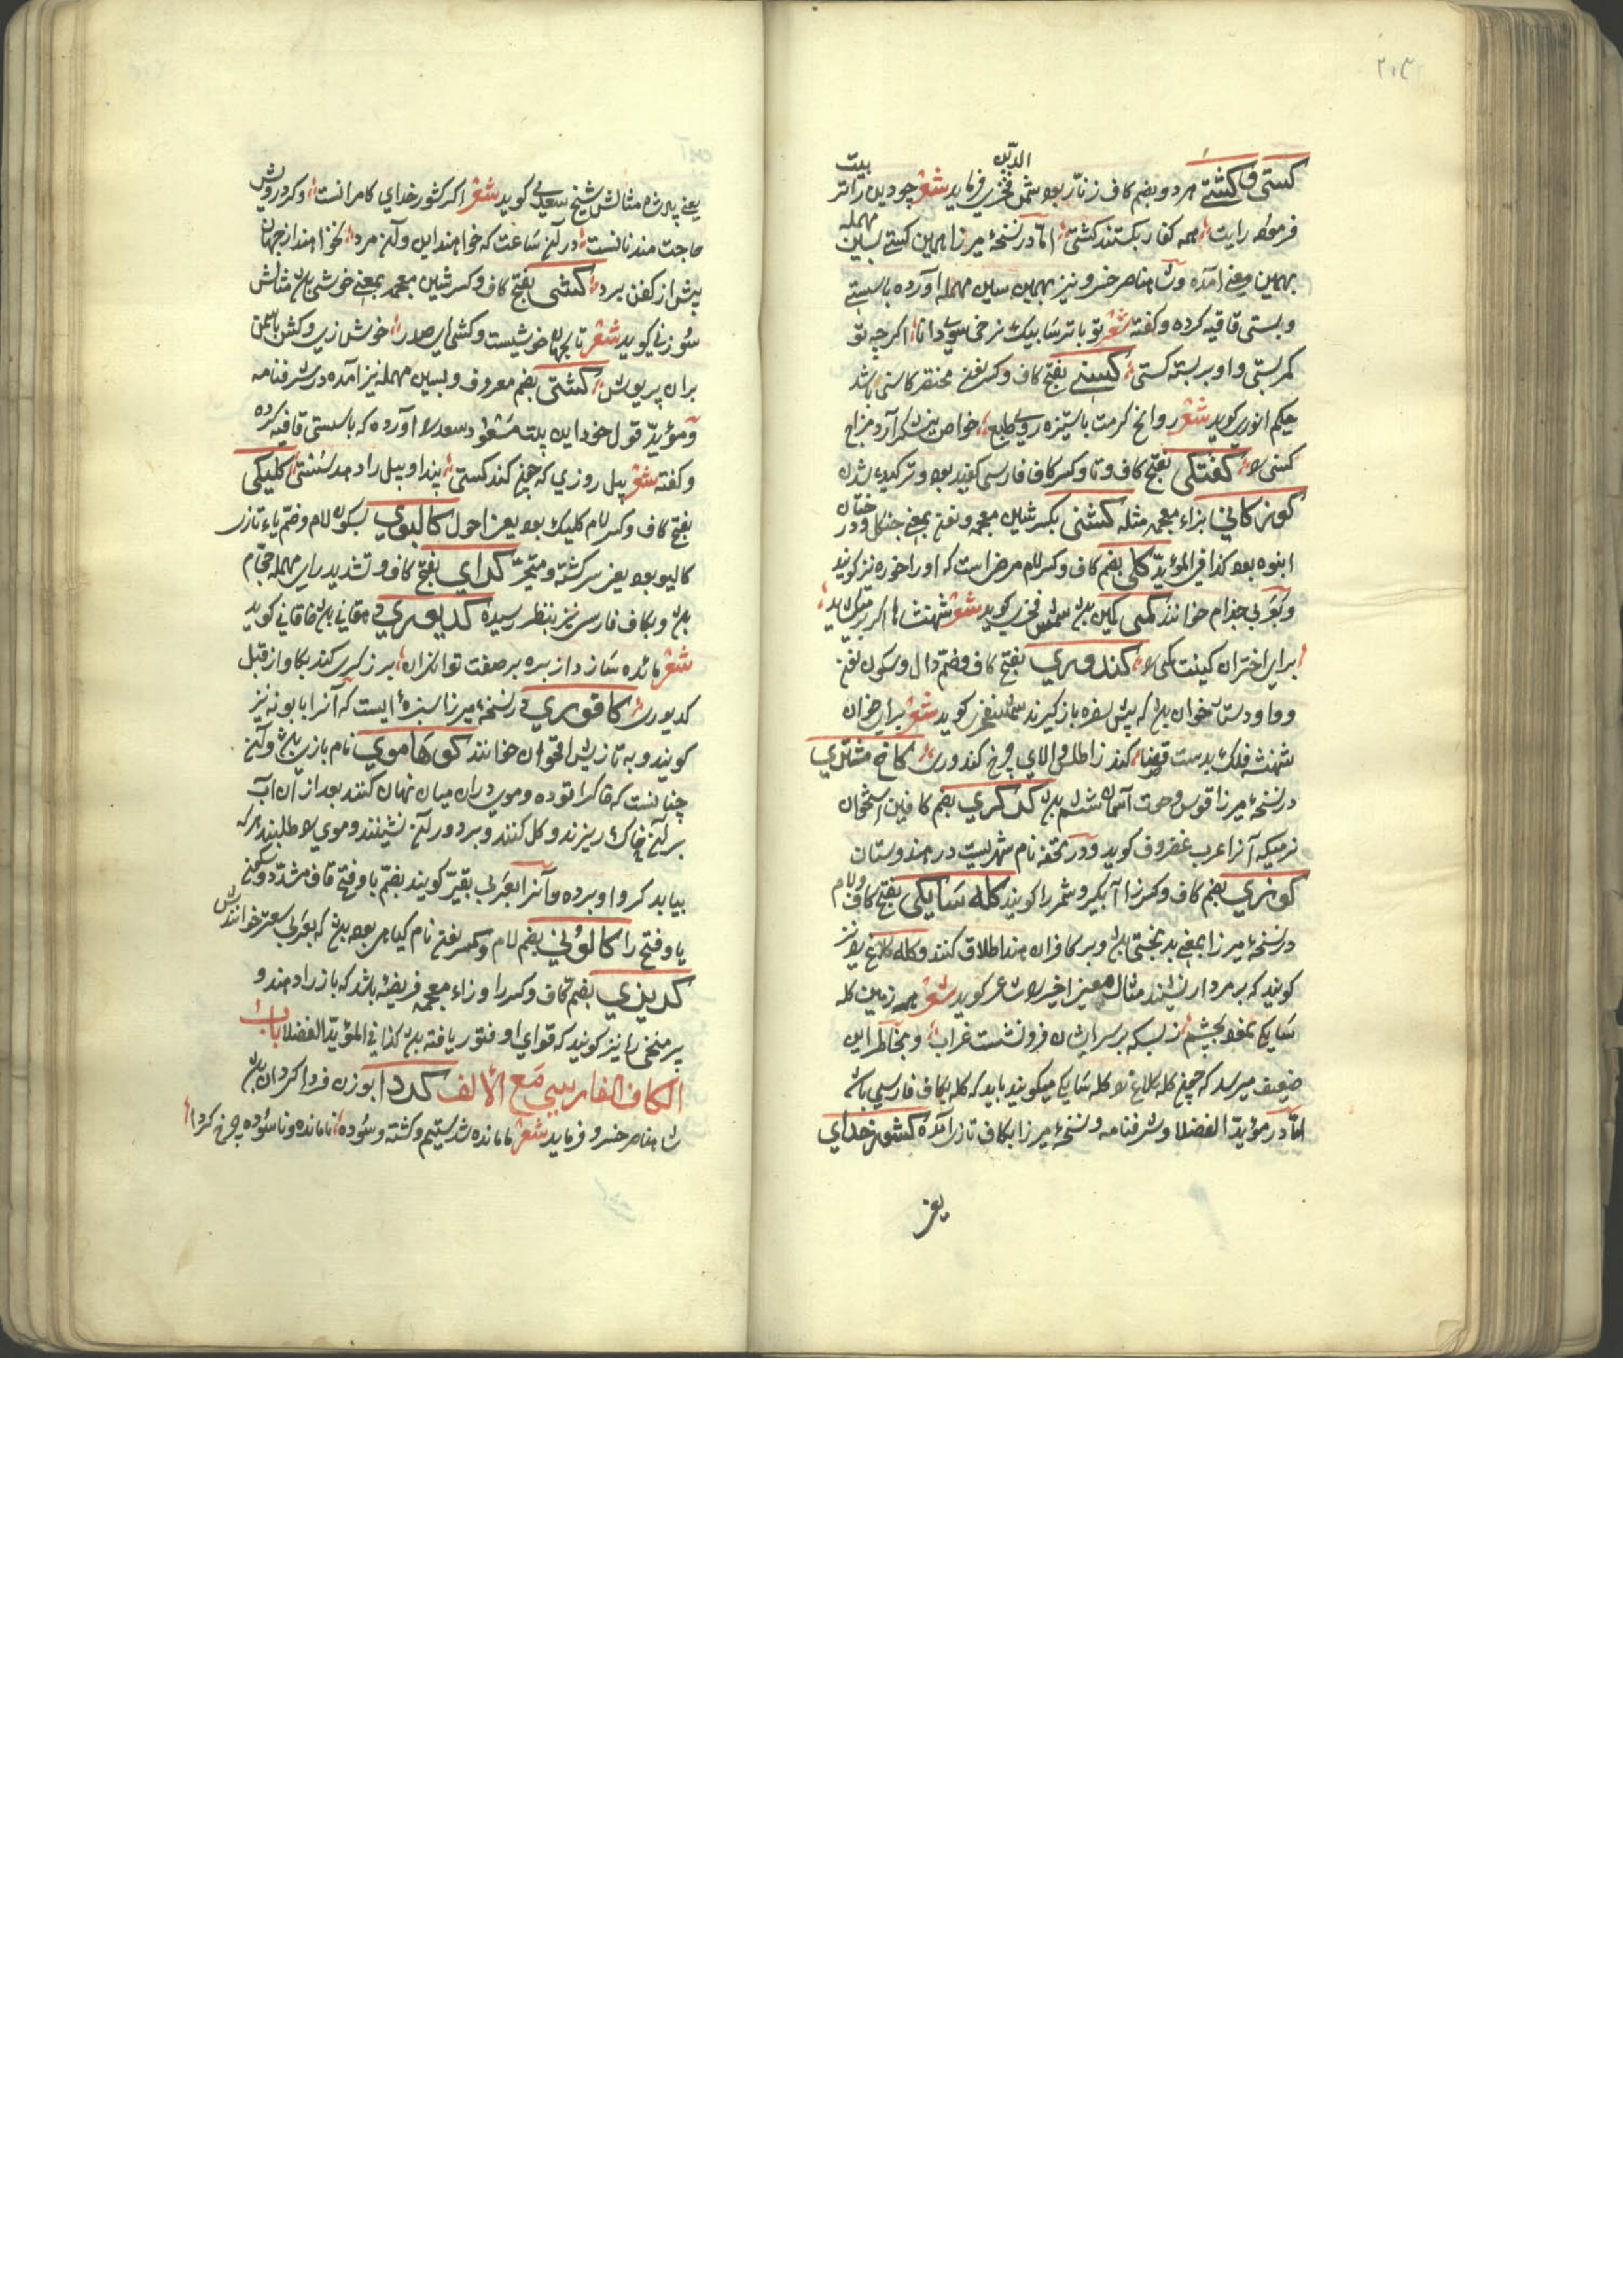 ۲۰۳
کستی و کشتی هر دو بضم کاف زنار بود شمس الدین فخری فرماید شعر چو دین را تر بیت
فرمود رایت همه کفار بکستند کشتی اما در نسخهٔ میرزا همین کستی بسین مهمله
بهمین معنی آمده و شاه ناصر خسرو نیز بهمین سین مهمله آورده با سستی
و بستی قافیه کرده و گفته شعر تو با ترسا بیک نرخی سوی دانا اکر چه تو
کمر بستی و او بر بسته کستی کسنی بفتح کاف و کسر نون مختصر کاسنی باشد
حکیم انوری کوید شعر روایح کرمت با ستیزه رویی طبع خواص نیشکر آرد مزاج
کسنی را کفتکی بفتح کاف و تا و کسر کاف فارسی کفیده بود و ترکیده شده
کوز کانی بزاء معجمه مثله کشنی بکسر شین معجمه و نون بمعنی جنکل و درختان
انبوه بود کذا فی المؤید کلی بضم کاف و کسر لام مرضی است که او را خوره نیز کویند
و بعربی جذام خوانند کمی کمین بود شمس فخری کوید شعر شهنشاها اکر بر میکشاید
برای اختران کینت کمی را کندوری بفتح کاف و ضم دال و سکون نون
و واو دستار خوان بود که پیش سفره باز کیرند شمس فخری کوید شعر برای خوان
شهنشه فلک بدست قضا کند ز اطلس والای چرخ کندوری کاخ مشتری
در نسخهٔ میرزا قوس و حوت آسمان ششم بود کرکری بضم کافین استخوان
نرمیکه آنرا عرب غضروف کوید و در تحفه نام شهریست در هندوستان
کوزری بضم کاف و کسر زا آبکیر و شمر را کویند کله سایکی بفتح کاف و لام
در نسخهٔ میرزا بمعنی بدبختی بود و بر کافران هند اطلاق کنند و کله کلاغ را نیز
کویند که بر مردار نشیند مثال معنی اخیر را شاعر کوید شعر همه زمین کله
سایکی نمود بچشم ز بسکه بر سر ایشان فرو نشست غراب و بخاطر این
ضعیف میرسد که چون کله کلاغ را کله سایکی میکویند باید که کله بکاف فارسی باشد
اما در مؤید الفضلا و شرفنامه و نسخهٔ میرزا بکاف تازی آمده کشور خدای
یعنی
یعنی پادشاه مثالش شیخ سعدی کوید شعر اکر کشور خدای کامرانست و کر درویش
حاجتمند نانست در آن ساعت که خواهند این و آن مرد نخواهند از جهان
بیش از کفن برد کشی بفتح کاف و کسر شین معجمه بمعنی خوشی بود مثالش
سوزنی کوید شعر تا بجهان خوشیست و کشی ای صدر خوش زی و کش باش
بر آن پریوش کشتی بضم معروف و بسین مهمله نیز آمده در شرفنامه
و مؤید قول خود این بیت مسعود سعد را آورده که با سستی قافیه کرده
و کفته شعر پیل روزی که چون کند کستی پندا و پیل را دهد سستی کلیکی
بفتح کاف و کسر لام کلیک بود یعنی احول کالیوی بسکون لام و ضم یاء تازی
کالیو بود یعنی سرکشته و متحیر کرای بفتح کاف و تشدید راء مهمله حجام
بود و بکاف فارسی نیز بنظر رسیده کدیوری دهقانی بود خاقانی کوید
شعر مائده سازد از بره بر صفت توانکران برزکری کند بکاو از قبل
کدیوری کافوری در نسخهٔ میرزا سبزهٔ ایست که آنرا بابونه نیز
کویند و به تازیش اقحوان خوانند کوهاموی نام بازیی بود و آن
چنانست که خاک را توده و موی در آن میان نهان کنند بعد از آن آب
بر آن خاک ریزند و کل کنند و بر دور آن نشینند و موی را طلبند هر که
بیابد کرو او برده و آنرا بعربی بقیر کویند بضم با و فتح قاف مشدد و سکون
یا و فتح را کالونی بضم لام و کسر نون نام کیاهی بود که بعربی سعتر خوانندش
کریزی بضم کاف و کسر را و زاء معجمه فریفته باشد که باز را دهند و
پیر منحنی را نیز کویند که قوای او فتور یافته بود کذا فی المؤید الفضلا باب
الکاف الفارسی مع الألف کردا بوزن فردا کردان بود
شاه ناصر خسرو فرماید شعر ما مانده شدستیم و کشته و سوده نا مانده و ناسوده چرخ کردا